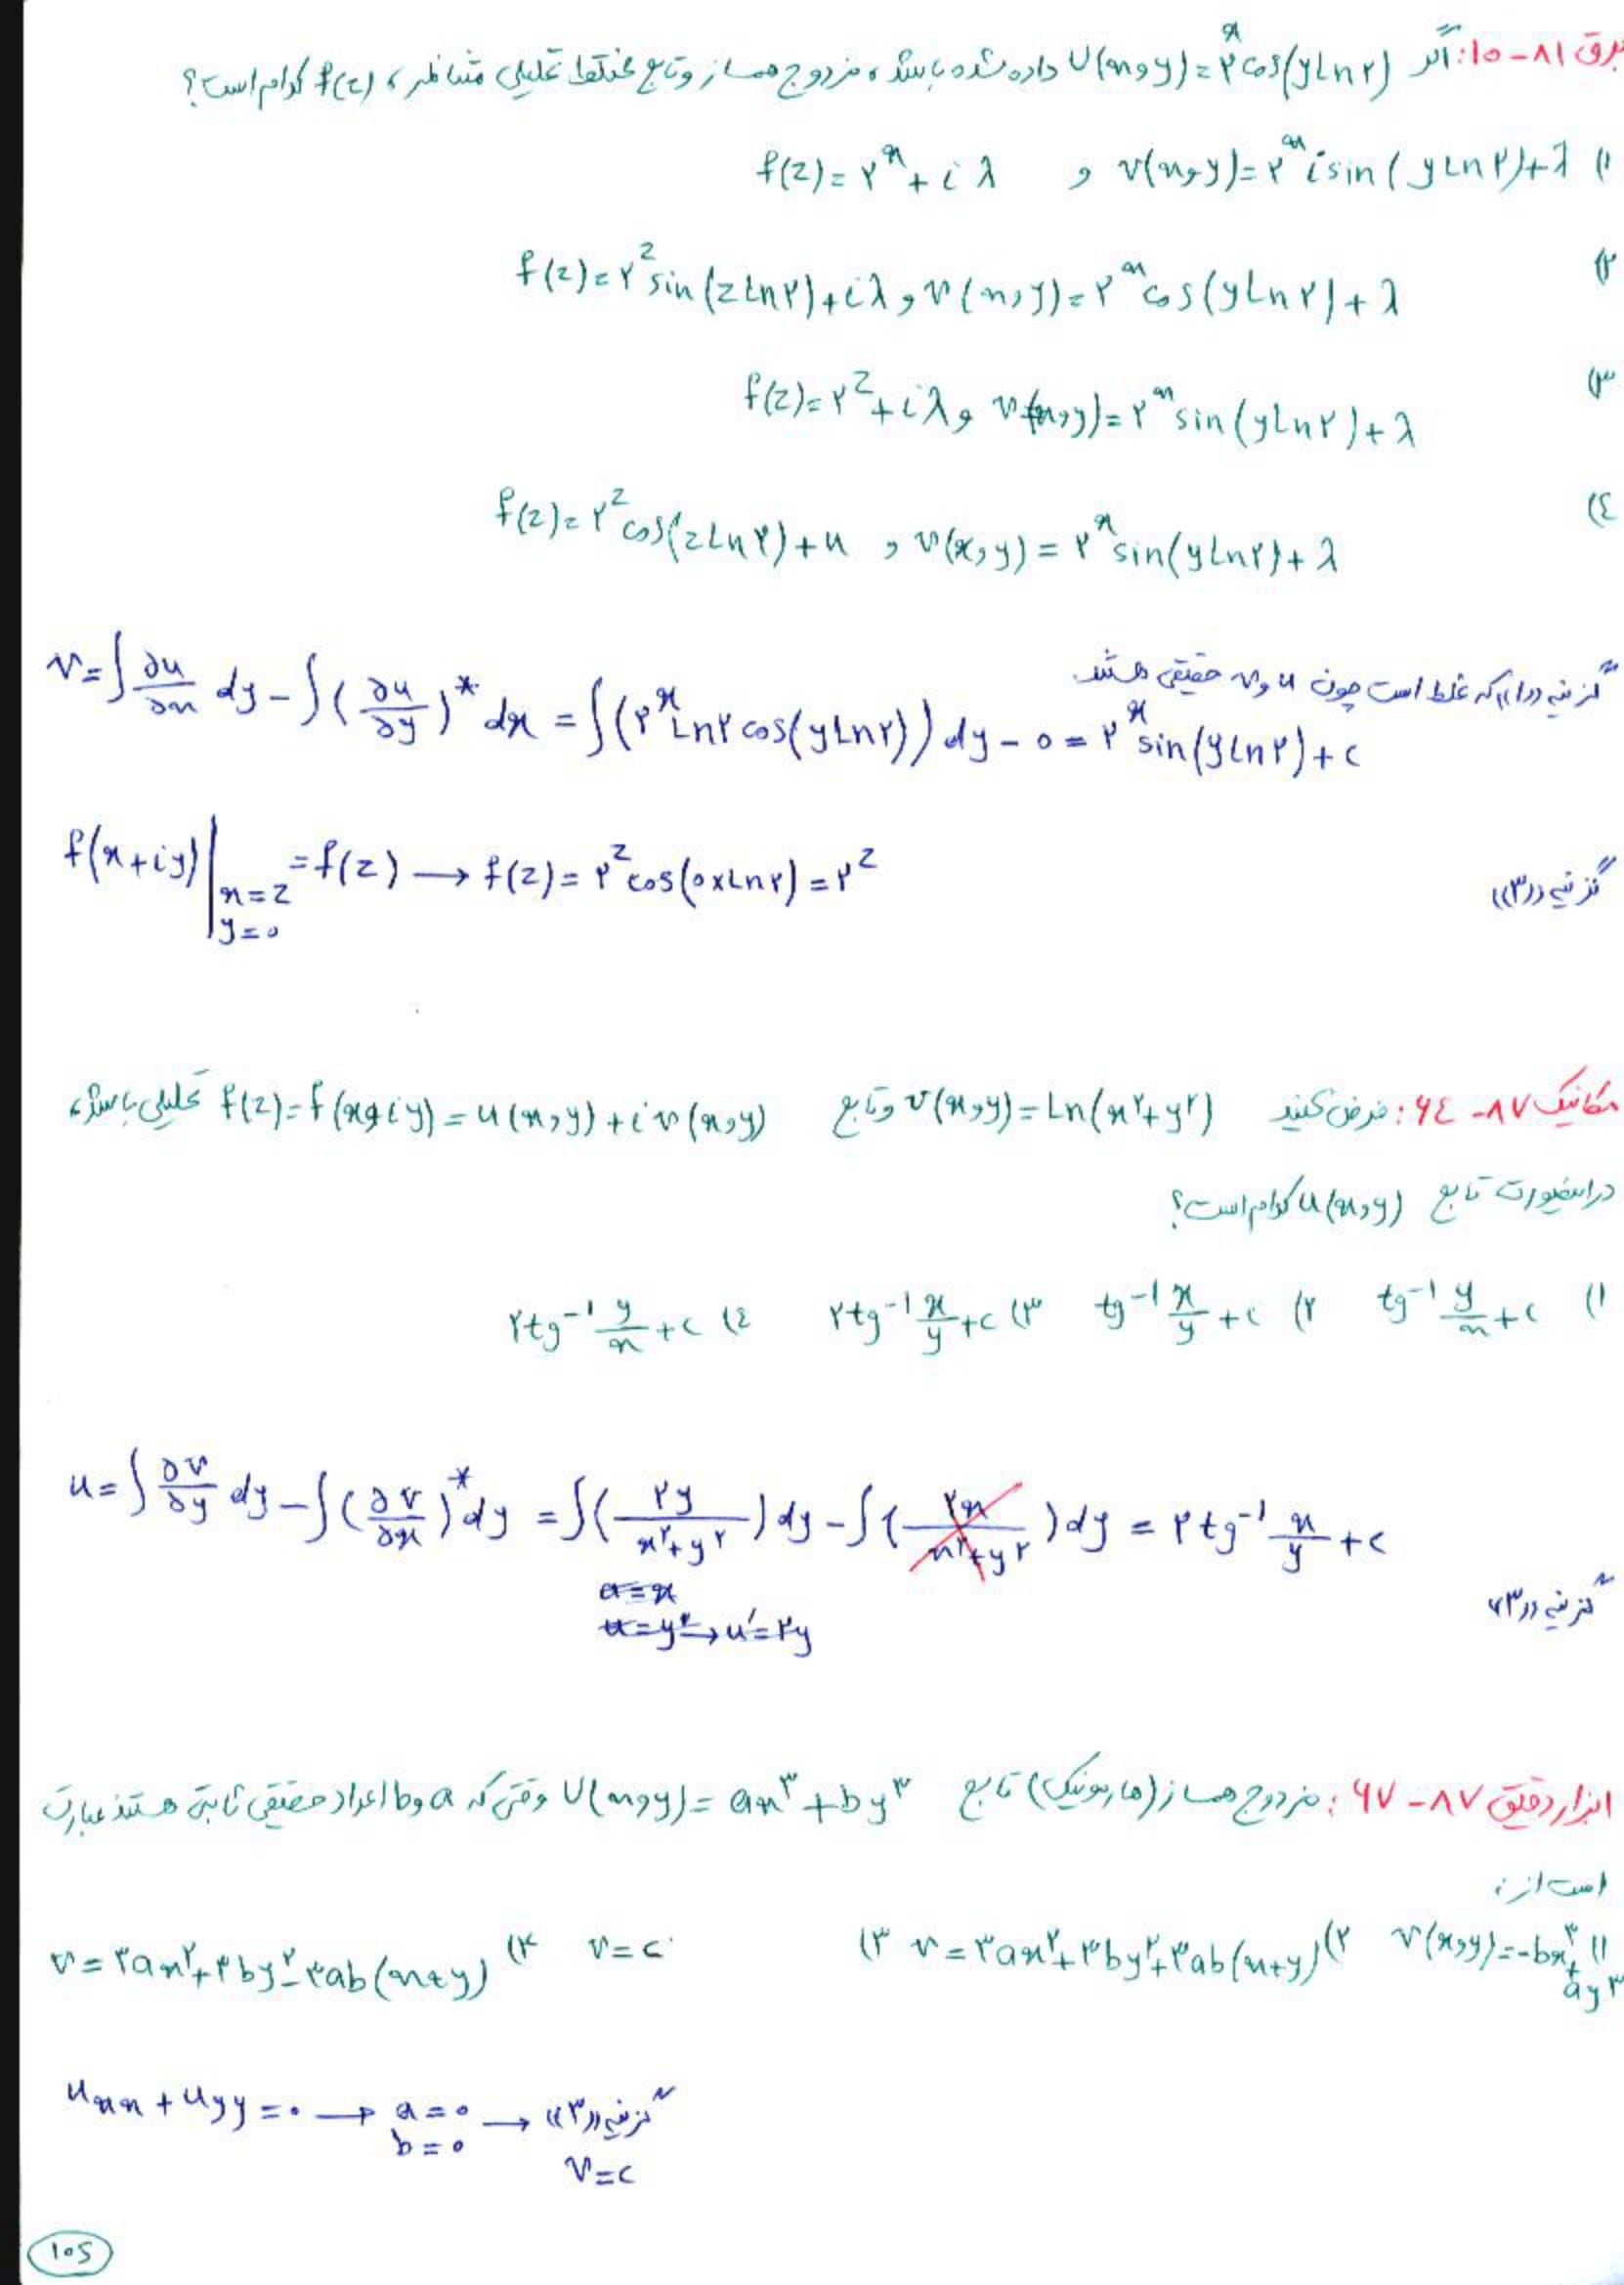 برق ۸۱-۱۰۵: اگر U(x,y)=۲^x cos(y Ln۲) داده شده باشد، مزدوج همساز و تابع مختلط تحلیلی متناظر، f(z) کدام است؟
۱) v(x,y)=۲^x i sin(y Ln۲)+λ و f(z)=۲^x+iλ
۲) f(z)=۲^z sin(z Ln۲)+iλ و v(x,y)=۲^x cos(y Ln۲)+λ
۳) f(z)=۲^z+iλ و v(x,y)=۲^x sin(y Ln۲)+λ
۴) f(z)=۲^z cos(z Ln۲)+u و v(x,y)=۲^x sin(y Ln۲)+λ
گزینه «۱» که غلط است چون u و v حقیقی هستند
v=∫ ∂u/∂x dy - ∫(∂u/∂y)* dx = ∫(۲^x Ln۲ cos(y Ln۲)) dy - ۰ = ۲^x sin(y Ln۲)+c
f(x+iy)|x=z, y=۰ = f(z) → f(z)=۲^z cos(۰×Ln۲)=۲^z
گزینه «۳»
مکانیک ۸۷-۶۴: فرض کنید v(x,y)=Ln(x۲+y۲) و تابع f(z)=f(x+iy)=u(x,y)+iv(x,y) تحلیلی باشد،
در اینصورت تابع u(x,y) کدام است؟
۱) tg^-۱ y/x +c ۲) tg^-۱ x/y +c ۳) ۲tg^-۱ x/y +c ۴) ۲tg^-۱ y/x +c
u=∫ ∂v/∂y dy - ∫(∂v/∂x)* dy = ∫(۲y/(x۲+y۲)) dy - ∫(۲x/(x۲+y۲)) dy = ۲tg^-۱ x/y +c
a=x
u=y۲→u'=۲y
گزینه «۳»
ابزار دقیق ۸۷-۶۷: مزدوج همساز (هارمونیک) تابع U(x,y)=ax۳+by۳ وقتی که a و b اعداد حقیقی ثابتی هستند عبارت
است از:
۱) v(x,y)=-bx۳+ay۳ ۲) v=۳ax۲+۳by۲+۳ab(x+y) ۳) v=c ۴) v=۳ax۲+۳by۲-۳ab(x+y)
uxx+uyy=۰ → a=۰ b=۰ → گزینه «۳»
v=c
۱۰۵